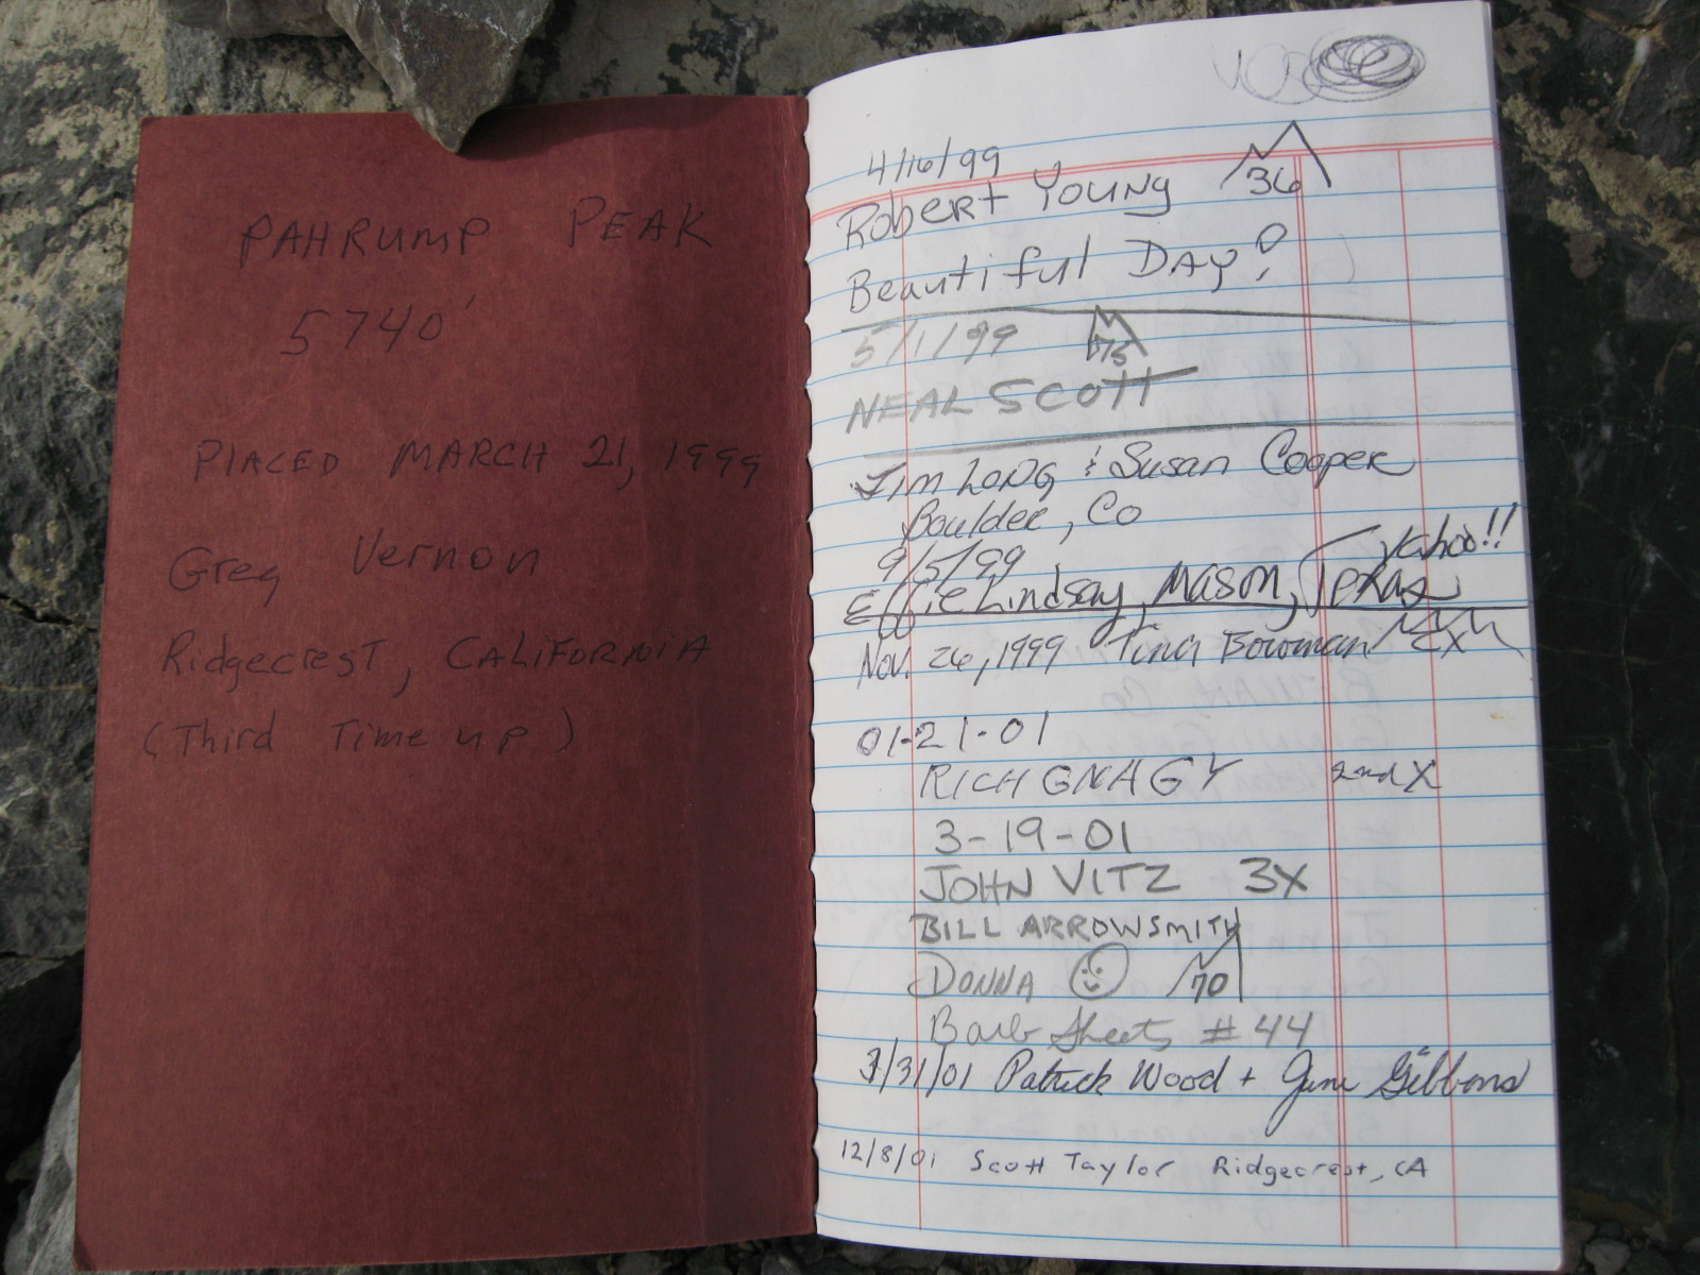 PAHRUMP PEAK
5740'
PLACED MARCH 21, 1999
Greg Vernon
Ridgecrest, CALIFORNIA
(Third Time up)
4/16/99
Robert Young 36
Beautiful DAY!
5/1/99
NEAL SCOTT
Jim Long & Susan Cooper
Boulder, Co
9/5/99 Yahoo!!
Effie Lindsay, Mason, Texas
Nov. 26, 1999 Tina Bowman
01-21-01
RICH GNAGY 2nd X
3-19-01
JOHN VITZ 3X
BILL ARROWSMITH
DONNA 70
Barb Sheets #44
3/31/01 Patrick Wood + Gibbons
12/8/01 Scott Taylor Ridgecrest, CA